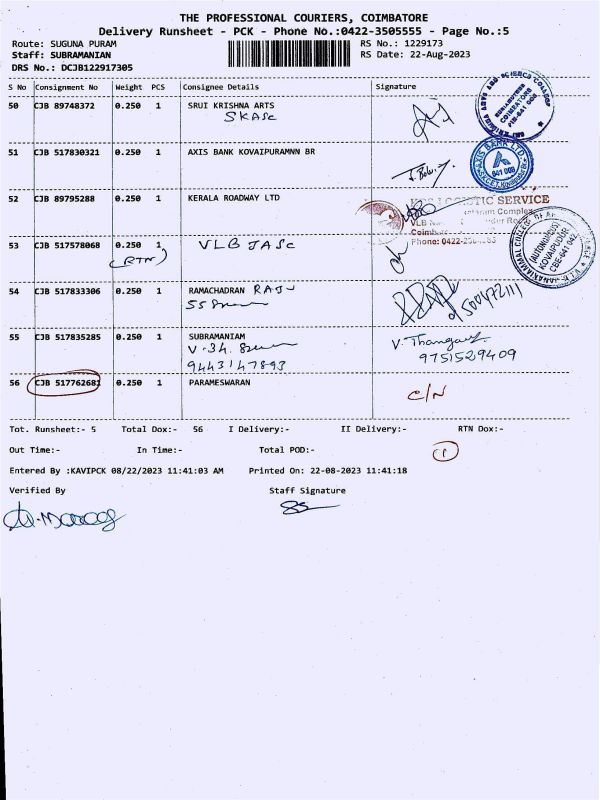 THE PROFESSIONAL COURIERS, COIMBATORE
Delivery Runsheet - PCK - Phone No.:0422-3505555 - Page No.:5
Route: SUGUNA PURAM
RS No.: 1229173
Staff: SUBRAMANIAN
RS Date: 22-Aug-2023
DRS No.: DCJB122917305
S No Consignment No Weight PCS Consignee Details Signature
50 CJB 89748372 0.250 1 SRUI KRISHNA ARTS
SKASC
51 CJB 517830321 0.250 1 AXIS BANK KOVAIPURAMNN BR
AXIS BANK LTD
641 008
52 CJB 89795288 0.250 1 KERALA ROADWAY LTD
SERVICE
Complex
VLB
Phone: 0422-2
53 CJB 517578068 0.250 1 VLB JASC
(RTN)
(AUTONOMOUS)
KOVAIPUDUR
CBE-641 042
54 CJB 517833306 0.250 1 RAMACHADRAN RAJU
55 CJB 517835285 0.250 1 SUBRAMANIAM
V. Thangaraj
V-34.
9443147893
9751529409
56 CJB 517762681 0.250 1 PARAMESWARAN
C/N
Tot. Runsheet:- 5 Total Dox:- 56 I Delivery:- II Delivery:- RTN Dox:-
Out Time:- In Time:- Total POD:-
1
Entered By :KAVIPCK 08/22/2023 11:41:03 AM Printed On: 22-08-2023 11:41:18
Verified By Staff Signature